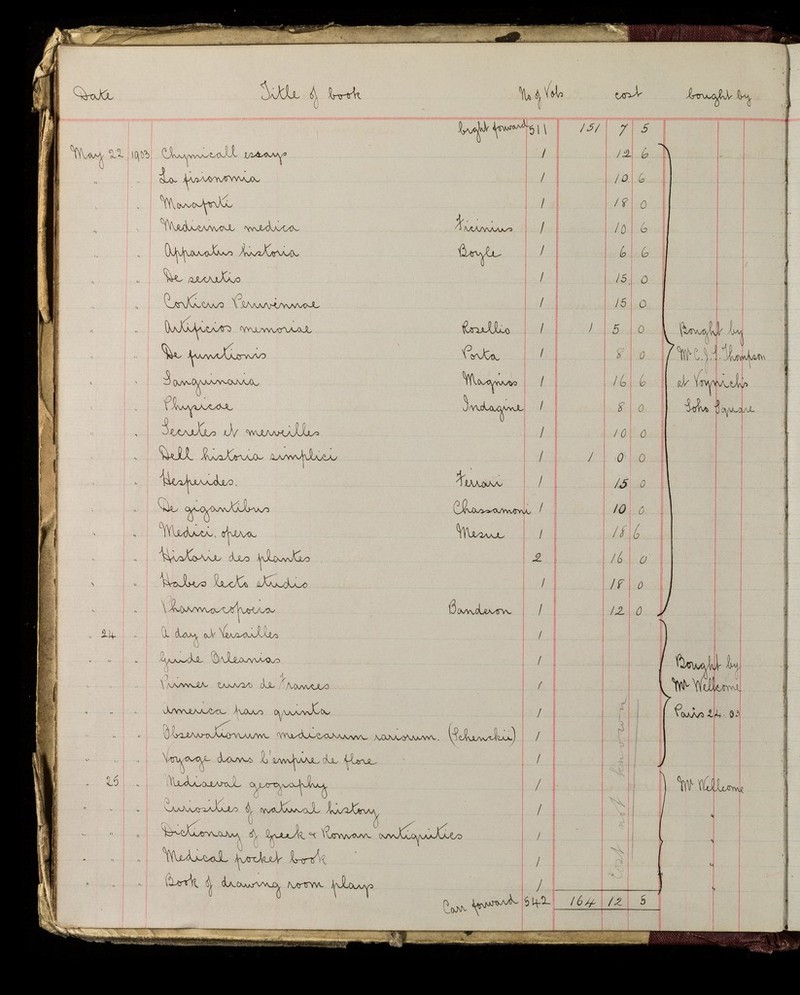 Date Title of book No of Vols cost bought by
brght forward 511 151 7 5
May 22 1903 Chymicall essays 1 12 6
" " La fisionomia 1 10 6
" " 1 18 0
" " Medicinae medica Ficinius 1 10 6
" " Apparatus historia Boyle 1 6 6
" " De secretis 1 15 0
" " Corticus Peruvennae 1 15 0
" " Artificios memoriae Rosellio 1 1 5 0 Bought by
" " De functionis Porta 1 8 0 Mr C.J.S. Thompson
" " Sanguinaria Magnus 1 16 6 at Voynichs
" " Physicae Indagine 1 8 0 Soho Square
" " Secretes et merveilles 1 10 0
" " Dell historia simplici 1 1 0 0
" " Hesperides. Ferrari 1 15 0
" " De gigantibus Chassamoni 1 10 0
" " Medici. opera Mesue 1 18 6
" " Historie des plantes 2 16 0
" " Habes lecto studio 1 18 0
" " Pharmacopoeia Banderon 1 12 0
" 24 " A day at Versailles 1
" " " Guide Orleanias 1 Bought by
" " " Primer curso de Frances 1 Mr Wellcome
" " " America hars quinta 1 Paris 24. 03
" " " Observationum medicarum rariorum. (Schenckii) 1
" " " Voyage dans l'empire de flore 1
" 25 " Mediaeval geography 1 Mr Wellcome
" " " Curiosities of natural history 1 "
" " " Dictionary of Greek & Roman antiquities 1
" " " Medical pocket book 1 "
" " " Book of drawing room plays 1 "
cost not known
Carr forward 542 164 12 5